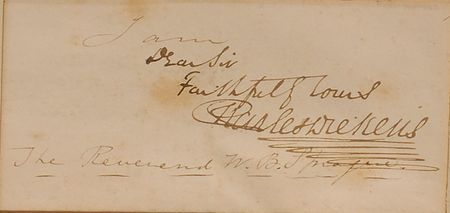 I am
Dear Sir
Faithfully Yours
Charles Dickens
The Reverend W. B. Sprague.